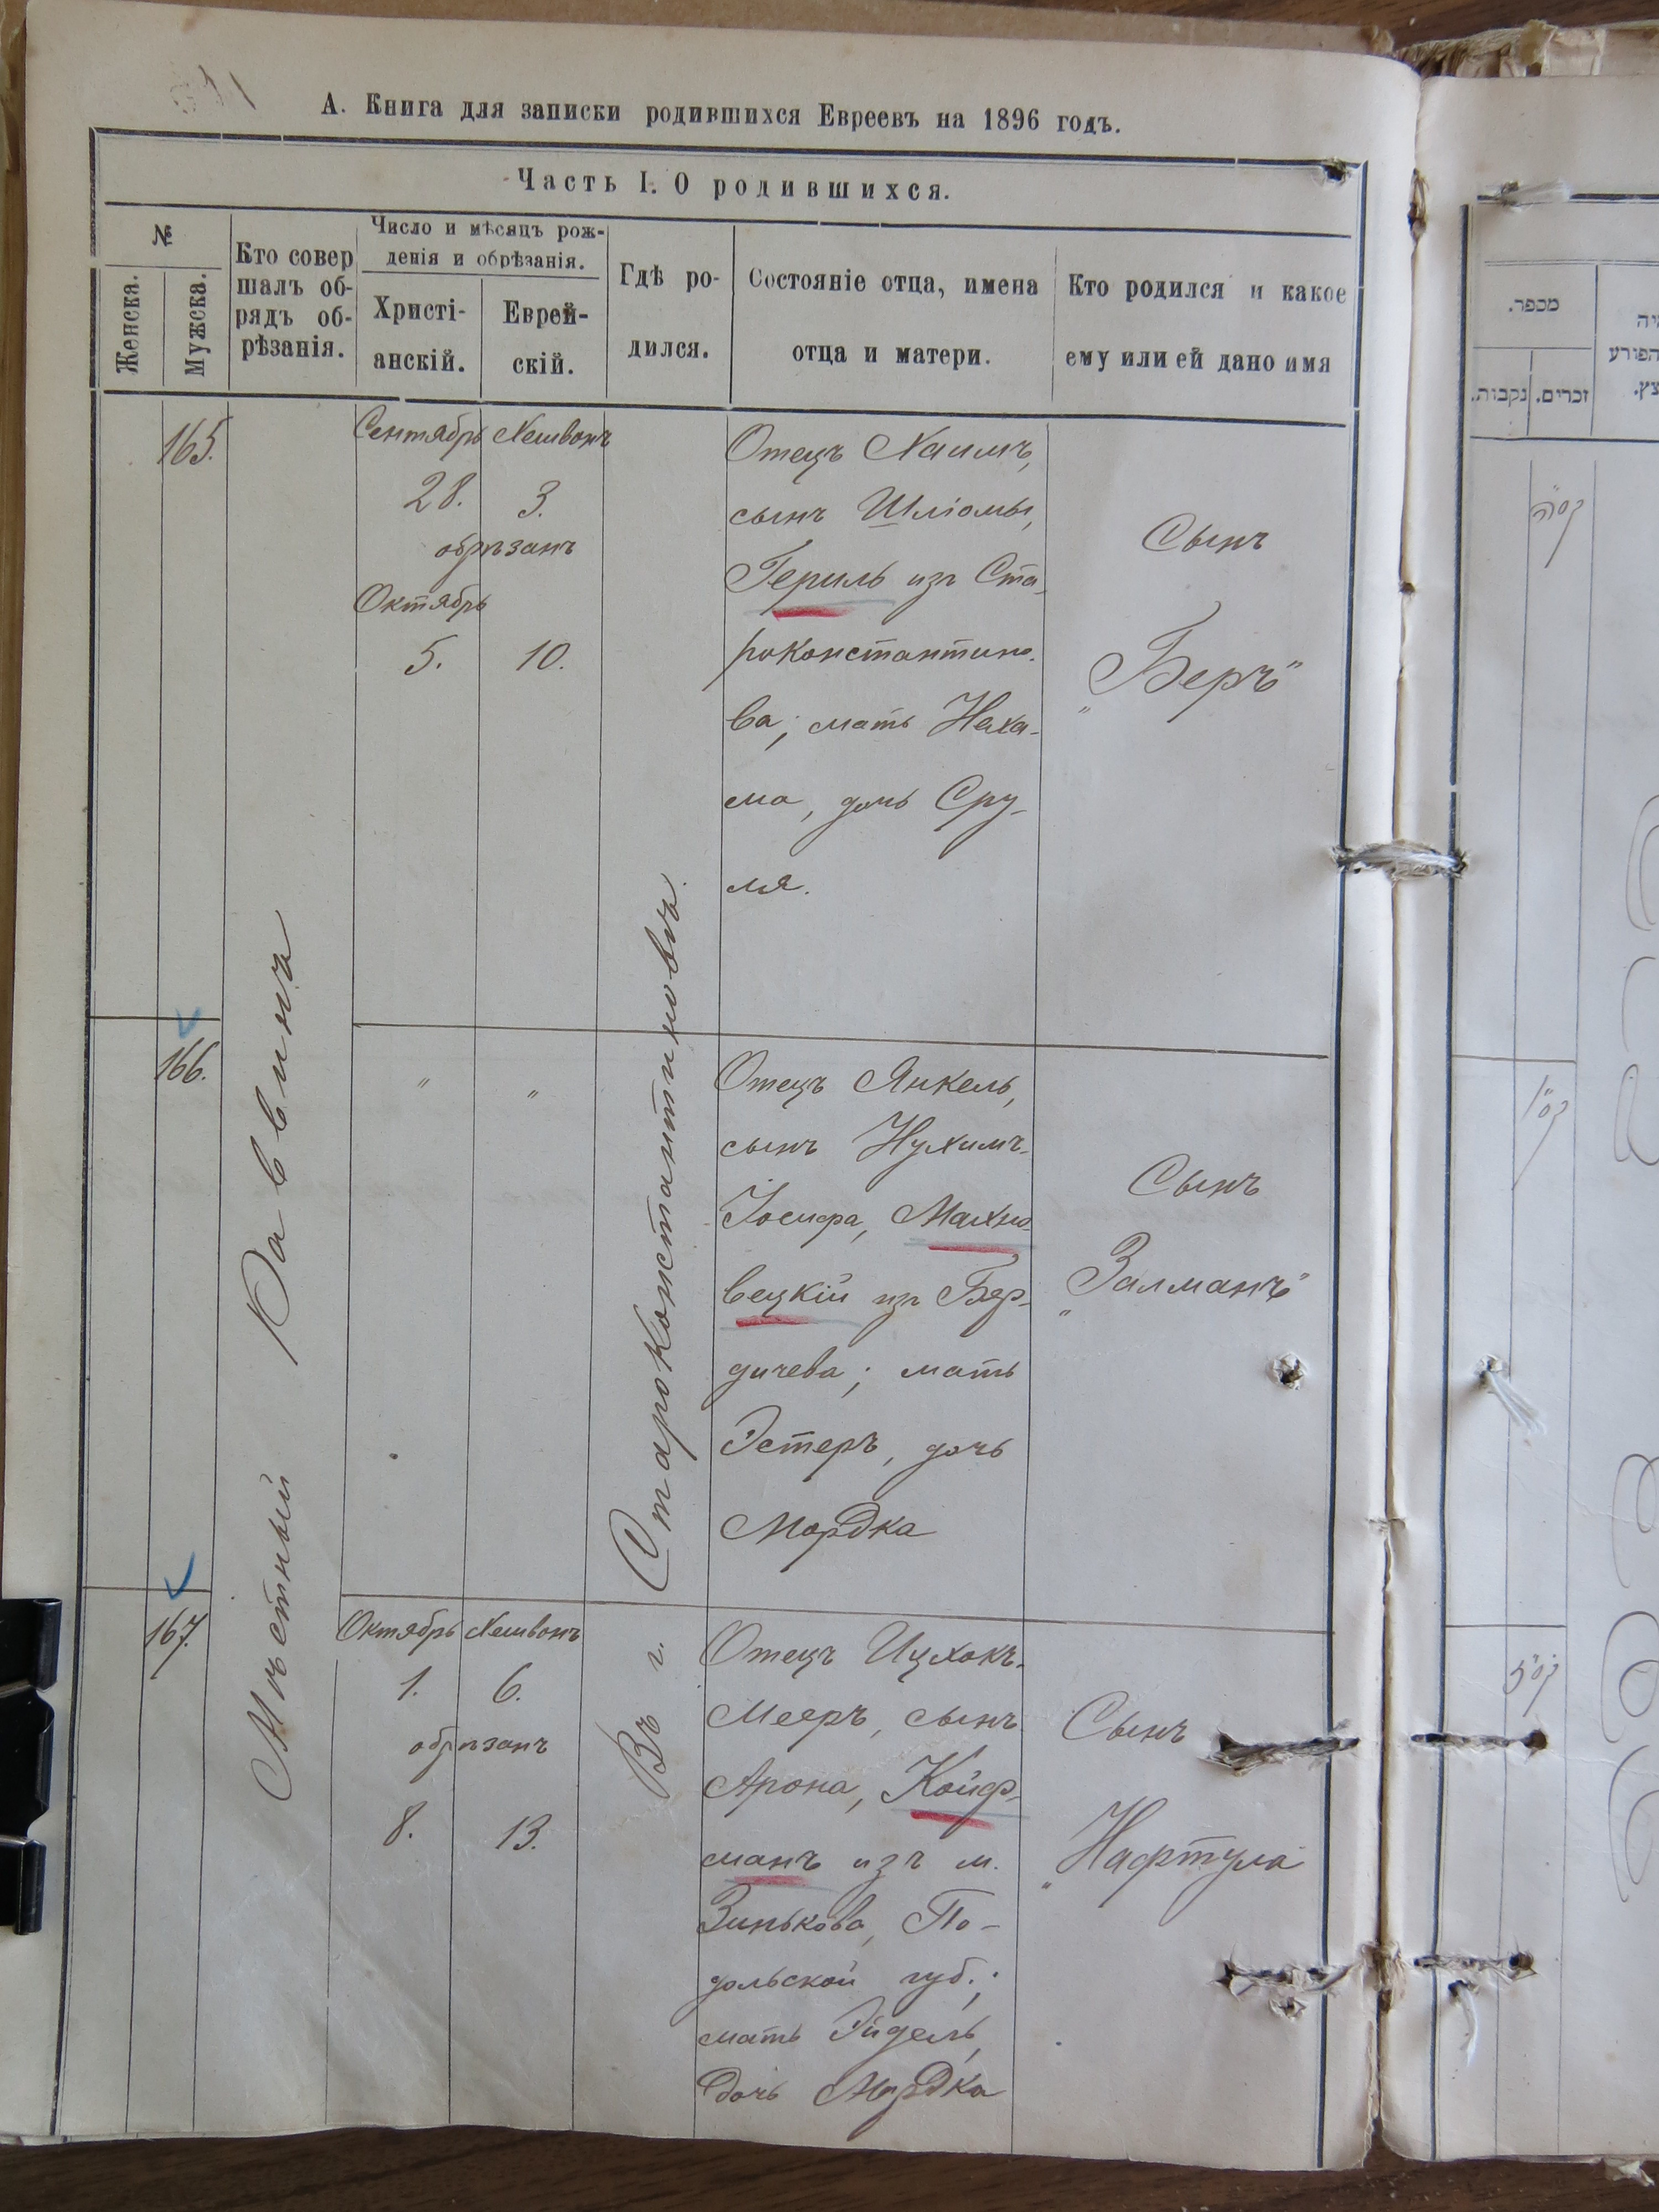 А. Книга для записки родившихся Евреевъ на 1896 годъ.
Часть I. О родившихся.
№
Женска.
Мужска.
Кто совер
шалъ об-
рядъ об-
рѣзанія.
Число и мѣсяцъ рож-
денія и обрѣзанія.
Христі-
анскій.
Еврей-
скій.
Гдѣ ро-
дился.
Состояніе отца, имена
отца и матери.
Кто родился и какое
ему или ей дано имя
Мѣстный Раввинъ
Въ г. Староконстантиновѣ.
165.
Сентябрь Хешвонъ
28. 3.
обрѣзанъ
Октябрь
5. 10.
Отецъ Хаимъ,
сынъ Шліомы,
Гериль изъ Ста-
роконстантино-
ва; мать Неха-
ма, дочь Сру-
ля.
Сынъ
„Беръ"
166.
" "
Отецъ Янкель,
сынъ Нухимъ-
Іосифа, Махно-
вецкій изъ Бер-
дичева; мать
Эстеръ, дочь
Мордка
Сынъ
„Залманъ"
167.
Октябрь Хешвонъ
1. 6.
обрѣзанъ
8. 13.
Отецъ Ицхокъ-
Мееръ, сынъ
Арона, Койф-
манъ изъ м.
Зинькова, По-
дольской губ.;
мать Эйдель,
дочь Мордка
Сынъ
„Нафтула
מספר.
נקבות.
זכרים.
הפורע
קס״ה
קס״ו
קס״ז